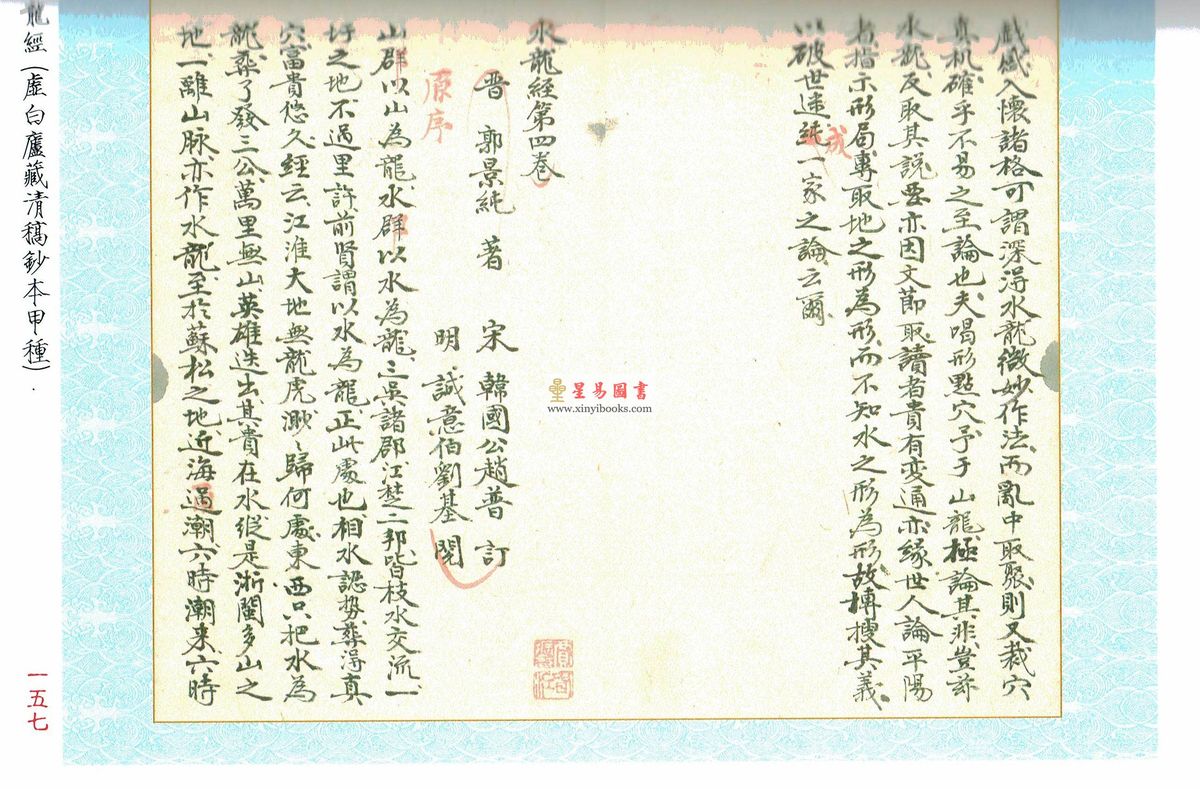 戲感入懷諸格可謂深得水龍微妙作法而亂中取聚則又裁穴
真机確乎不易之至論也夫喝形點穴予于山龍極論其非豈於
水龍反取其說要亦因文節取讀者貴有変通亦緣世人論平陽
者指示形局專取地之形為形而不知水之形為形故摶搜其義
以破世迷成一家之論云爾
水龍經第四卷
晋 郭景純 著 宋 韓國公趙普 訂
明 誠意伯劉基 閱
原序
山群以山為龍水群以水為龍三吳諸郡江楚二邦皆枝水交流一
圩之地不過里許前賢謂以水為龍正此處也相水認勢葬得真
穴富貴悠久經云江淮大地無龍虎渺〻歸何處東西只把水為
龍葬了發三公萬里無山英雄迭出其貴在水縱是淅閩多山之
地一離山脉亦作水龍至於蘇松之地近海過潮六時潮来六時
龍經(虛白廬藏清稿鈔本甲種)
一五七
星易图書
www.xinyibooks.com